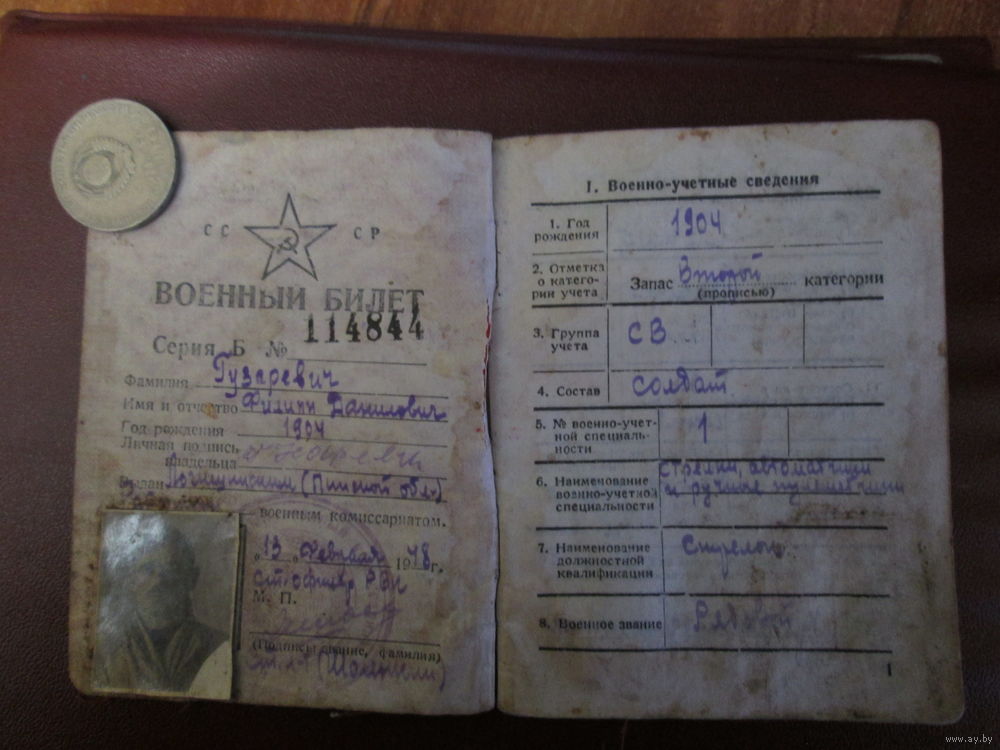 СС СР
ВОЕННЫЙ БИЛЕТ
Серия Б № 114844
Фамилия Гузаревич
Имя и отчество Филипп Данилович
Год рождения 1904
Личная подпись
владельца
Выдан Логишинским (Пинской обл.)
военным комиссариатом.
"13" февраля 1948г.
М. П.
(Подпись, звание, фамилия)
I. Военно-учетные сведения
1. Год
рождения 1904
2. Отметка
о катего-
рии учета Запас Второй категории
(прописью)
3. Группа
учета СВ
4. Состав солдат
5. № военно-учет-
ной специаль-
ности 1
6. Наименование
военно-учетной
специальности стрелки, автоматчики
и ручные пулеметчики
7. Наименование
должностной
квалификации Стрелок
8. Военное звание Рядовой
1
www.ay.by